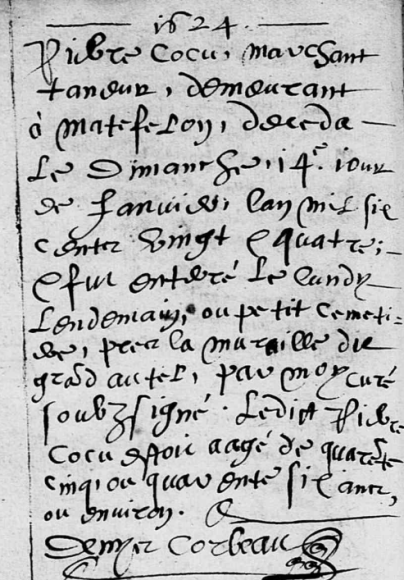 1624.
Pierre Cocu, marchant
taneur, demeurant
à Matefelon, deceda
le Dimanche, 14e. iour
de Janvier, lan mil six
centz vingt & quatre;
& fut enterré le lundy
lendemain, ou petit cemeti-
ere, prez la muraille du
grand autel, par moy curé
soubz signé. Ledict Pierre
Cocu estoit aagé de quarẽte
cinq ou quarente six ans,
ou environ.
Corbeau